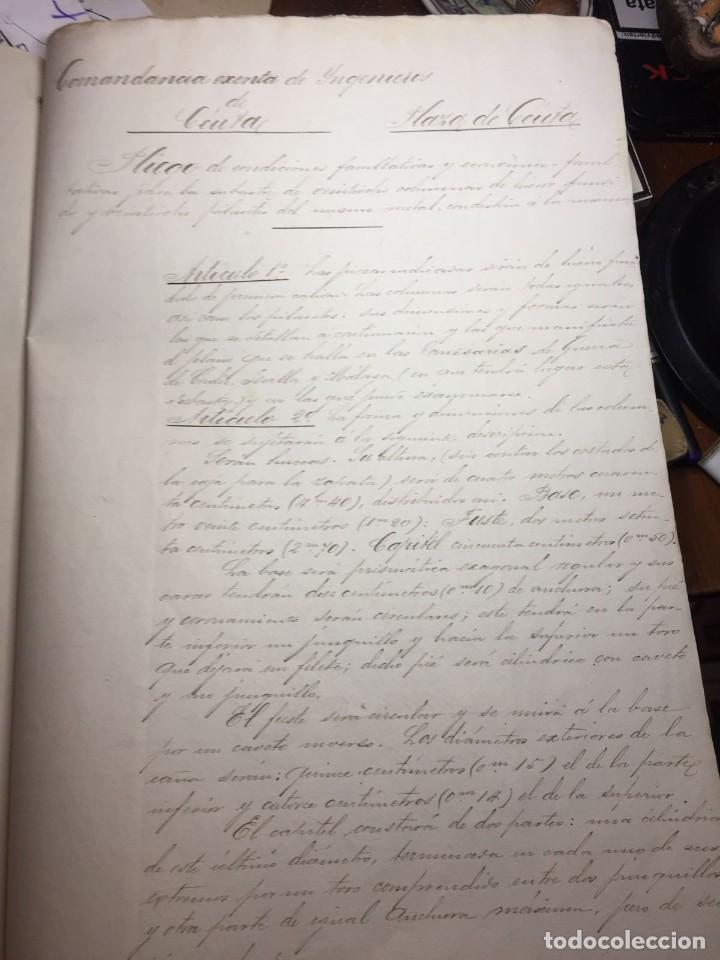 Comandancia exenta de Ingenieros
de
Ceuta Plaza de Ceuta
Pliego de condiciones facultativas y económico-facul
tativas para la subasta de veintidos columnas de hierro fundi
do y veintidos pilastres del mismo metal, con destino á la misma
Artículo 1º Las piezas indicadas serán de hierro fun
dido de primera calidad. Las columnas serán todas iguales,
así como los pilastres: sus dimensiones y formas serán
las que se detallan á continuación y las que manifiesta
el plano que se halla en las Comisarías de Guerra
de Cadiz, Sevilla y Malaga (en que tendrá lugar esta
subasta) y en las que puede examinarse.
Artículo 2º La forma y dimensiones de las colum
nas se sujetarán á la siguiente descripción.
Serán huecas. Su altura, (sin contar los costados de
la caja para la zapata) será de cuatro metros cuaren
ta centímetros (4m 40), distribuidos así. Base, un me
tro veinte centímetros (1m 20): Fuste, dos metros seten
ta centímetros (2m 70). Capitel cincuenta centímetros (0m 50).
La base será prismática exagonal regular y sus
caras tendrán diez centímetros (0m 10) de anchura; su pié
y coronamiento serán circulares; este tendrá en la par
te inferior un junquillo y hacia la superior un toro
que dejará un filete; dicho pié será cilíndrico con caveto
y uno junquillo.
El fuste será circular y se unirá á la base
por un caveto inverso. Los diámetros exteriores de la
caña serán: quince centímetros (0m 15) el de la parte
inferior y catorce centímetros (0m 14) el de la superior.
El capitel constará de dos partes: una cilíndrica
de este último diámetro, terminada en cada uno de sus
extremos por un toro comprendido entre dos junquillos
y otra parte de igual anchura máxima, pero de sec
todocoleccion